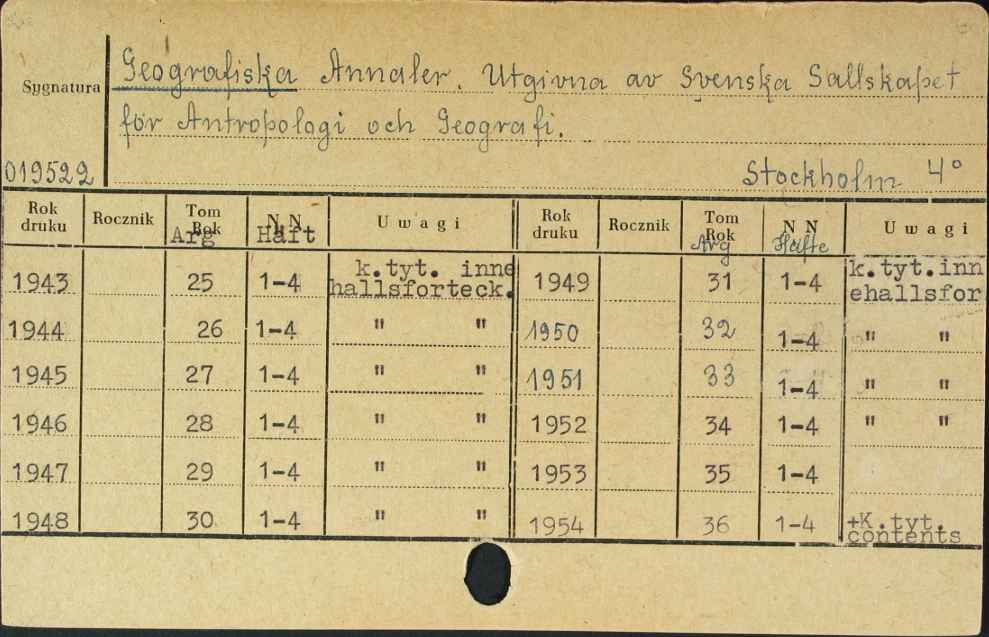 Sygnatura
Geografiska Annaler. Utgivna av Svenska Sallskapet
för Antropologi och Geografi.
019522 Stockholm 4°
Rok druku Rocznik Tom Rok Arg N N Häft Uwagi Rok druku Rocznik Tom Rok Arg N N Häfte Uwagi
1943 25 1-4 k.tyt. inne hallsforteck. 1949 31 1-4 k.tyt.inn ehallsfor
1944 26 1-4 " " 1950 32 1-4 " "
1945 27 1-4 " " 1951 33 1-4 " "
1946 28 1-4 " " 1952 34 1-4 " "
1947 29 1-4 " " 1953 35 1-4
1948 30 1-4 " " 1954 36 1-4 +K.tyt. contents